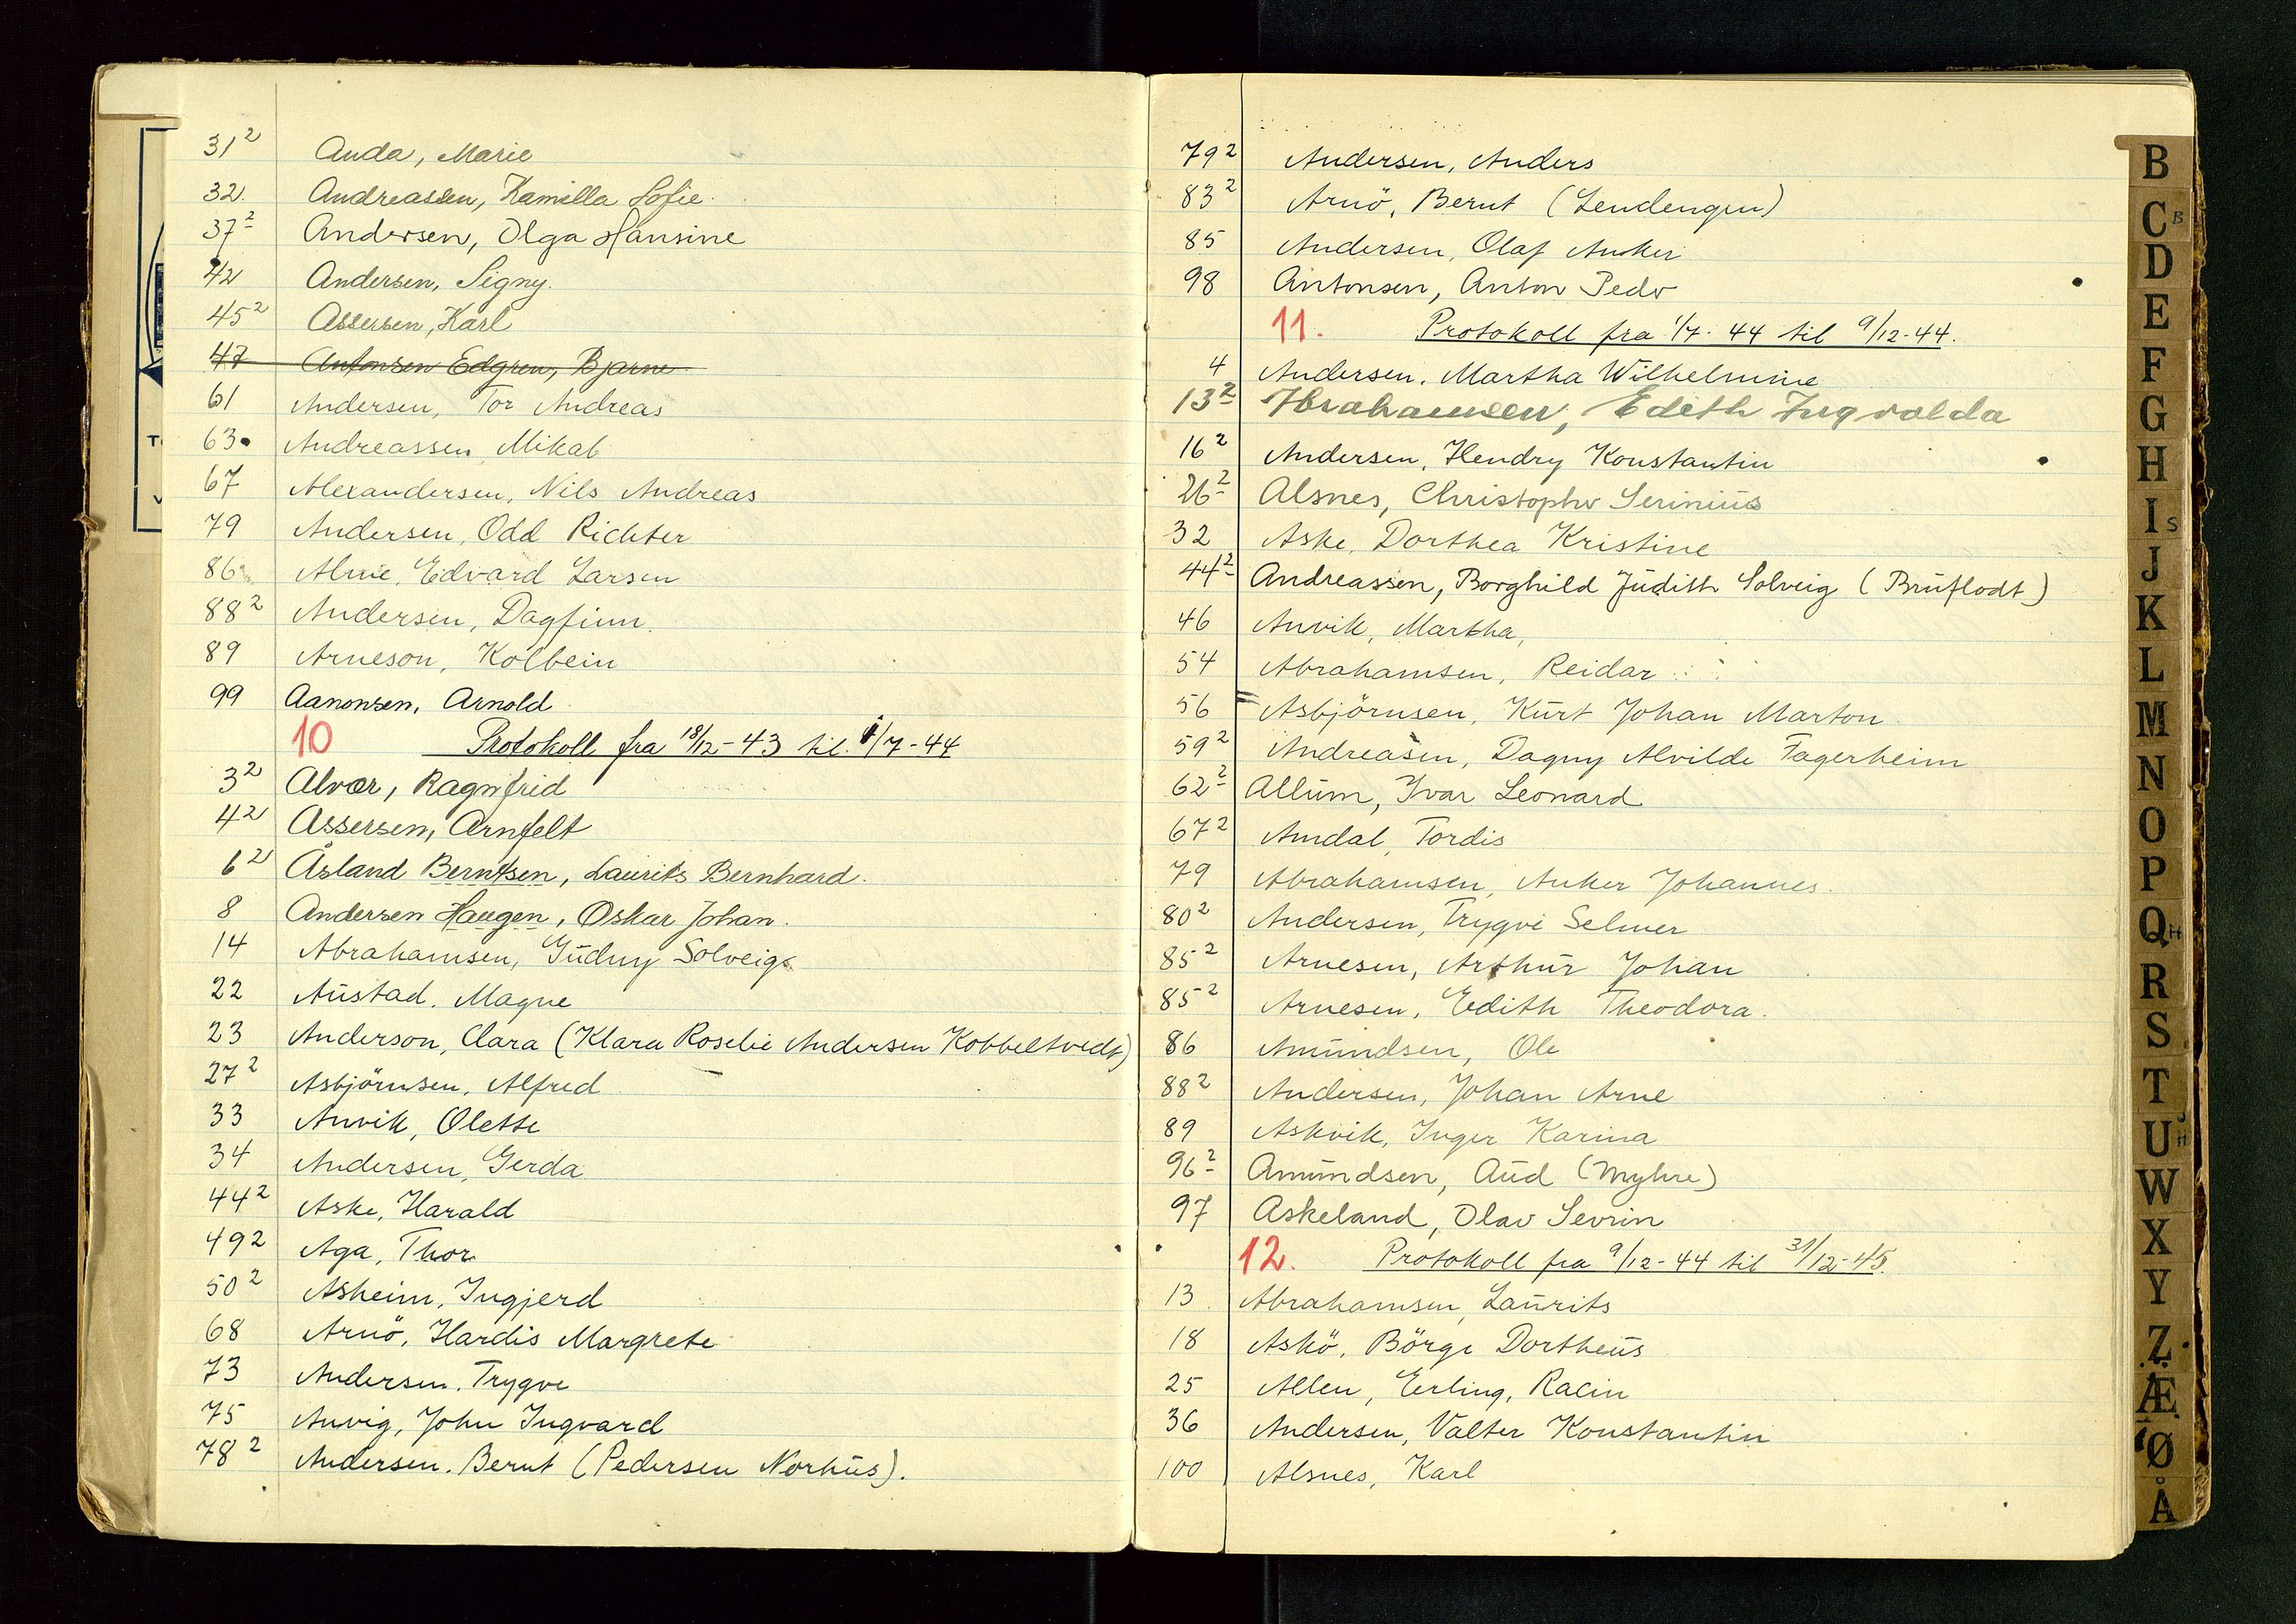 31² Anda, Marie
32. Andreassen, Kamilla Sofie.
37² Andersen, Olga Hansine
42 Andersen, Signy.
45² Assersen, Karl
47 Antonsen Edgren, Bjarne
61 Andersen, Tor Andreas
63. Andreassen, Mikal
67 Alexandersen, Nils Andreas
79 Andersen, Odd Richter
86 Alme, Edvard Larsen
88² Andersen, Dagfinn.
89 Arneson, Kolbein
99 Aanonsen, Arnold
10 Protokoll fra 18/12-43 til 1/7-44
3² Alvær, Ragnfrid
4² Assersen, Arnfelt
6² Åsland Berntsen, Laurits Bernhard.
8 Andersen Haugen, Oskar Johan.
14 Abrahamsen, Gudny Solveig
22 Austad, Magne
23 Anderson, Clara (Klara Roselie Andersen Kobbeltvedt)
27² Asbjörnsen, Alfred
33 Anvik, Olette
34 Andersen, Gerda
44² Aske, Harald
49² Aga, Thor
50² Asheim, Ingjerd
68 Arnö, Hardis Margrete
73 Andersen, Trygve
75 Anvig, John Ingvard
78² Andersen, Bernt (Pedersen Norhus).
79² Andersen, Anders
83² Arnö, Bernt (Lendengen)
85 Andersen, Olaf Anker
98 Antonsen, Anton Peder
11. Protokoll fra 1/7-44 til 9/12-44.
4 Andersen, Martha Wilhelmine
13² Abrahamsen, Edith Ingvalda
16² Andersen, Hendry Konstantin
26² Alsnes, Christopher Serinius
32 Aske, Dorthea Kristine
44² Andreassen, Borghild Judith Solveig (Bruflodt)
46 Anvik, Martha,
54 Abrahamsen, Reidar
56 Asbjörnsen, Kurt Johan Marton
59² Andreasen, Dagny Alvilde Fagerheim
62² Allum, Ivar Leonard
67² Amdal, Tordis
79 Abrahamsen, Anker Johannes.
80² Andersen, Trygve Selmer
85² Arnesen, Arthur Johan
85² Arnesen, Edith Theodora.
86 Amundsen, Ole
88² Andersen, Johan Arne
89 Askvik, Inger Karina
96² Amundsen, Aud (Myhre)
97 Askeland, Olav Sevrin
12. Protokoll fra 9/12-44 til 31/12-45.
13 Abrahamsen, Laurits
18 Askö, Börge Dortheus
25 Allen, Erling, Racin
36 Andersen, Valter Konstantin
100 Alsnes, Karl
B
C
D
E
F
G
H
I S
J
K
L
M
N
O
P
Q
R
S
T
U
W
X
Y
Z
Æ
Ø
Å